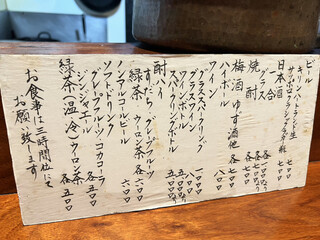 ビール
キリンハートランド生 七〇〇
サッポロクラシックラガー瓶 七〇〇
日本酒
一合 各七〇〇より
焼酎
グラス 各七〇〇より
梅酒 ゆず酒 他 各七〇〇
ハイボール 七〇〇
ワイン
グラススパークリング 八〇〇
グラスワイン 八〇〇
ボトルワイン
スパークリングボトル
酎ハイ
すだち グレープフルーツ
緑茶 ウーロン茶 各六〇〇
ノンアルコールビール 六〇〇
ソフトドリンク
グレープフルーツ コカコーラ
ジンジャエール 各五〇〇
緑茶(温、冷) ウーロン茶 各五〇〇
お食事は三時間位にて
お願い致します